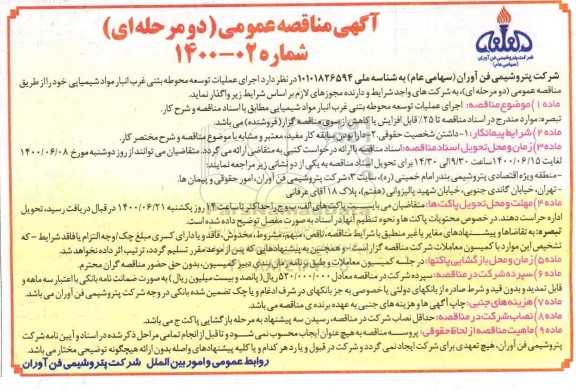 آگهی مناقصه عمومی (دو مرحله‌ای)
شماره ۰۲-۱۴۰۰
شرکت پتروشیمی فن آوران
(سهامی عام)
شرکت پتروشیمی فن آوران (سهامی عام) به شناسه ملی ۱۰۱۰۱۸۲۶۵۹۴ در نظر دارد اجرای عملیات توسعه محوطه بتنی غرب انبار مواد شیمیایی خود را از طریق
مناقصه عمومی (دو مرحله‌ای)، به شرکت های واجد شرایط و دارنده مجوزهای لازم بر اساس شرایط زیر واگذار نماید.
ماده ۱) موضوع مناقصه: اجرای عملیات توسعه محوطه بتنی غرب انبار مواد شیمیایی مطابق با اسناد مناقصه و شرح کار.
تبصره: موارد مندرج در اسناد مناقصه تا ۲۵٪ قابل افزایش یا کاهش از سوی مناقصه گزار (فروشنده) می باشد.
ماده ۲) شرایط پیمانکار: ۱- داشتن شخصیت حقوقی. ۲- دارا بودن سابقه کار مفید، معتبر و مشابه با موضوع مناقصه و شرح مختصر کار.
ماده ۳) زمان و محل تحویل اسناد مناقصه: اسناد مناقصه با ارائه درخواست کتبی به متقاضی ارائه می گردد. متقاضیان می توانند از روز دوشنبه مورخ ۱۴۰۰/۰۶/۰۸
لغایت ۱۴۰۰/۰۶/۱۵ ساعت ۹/۳۰ الی ۱۴/۳۰ برای تحویل اسناد مناقصه به یکی از دو نشانی زیر مراجعه نمایند:
-منطقه ویژه اقتصادی پتروشیمی بندر امام خمینی (ره)، سایت ۳، شرکت پتروشیمی فن آوران، امور حقوقی و پیمان ها.
-تهران، خیابان گاندی جنوبی، خیابان شهید پالیزوانی (هفتم)، پلاک ۱۸ آقای عرفانی
ماده ۴) مهلت و محل تحویل پاکت ها: متقاضیان می بایست پاکت های الف، ب و ج را حداکثر تا ساعت ۱۴ روز یکشنبه ۱۴۰۰/۰۶/۲۱ در قبال دریافت رسید، تحویل
اداره حراست دهند. در خصوص محتویات پاکت ها و نحوه تنظیم آنها در اسناد به صورت مفصل توضیح داده شده است.
تبصره: به تقاضاها و پیشنهادهای مغایر یا غیر منطبق با شرایط مناقصه، ناقص، مبهم، مشروط، مخدوش، فاقد و یا دارای کسری مبلغ چک/وجه التزام یا فاقد شرایط - که
تشخیص این موارد با کمیسیون معاملات شرکت مناقصه گزار است - و همچنین به پیشنهادهایی که پس از موعد مقرر تسلیم گردد، ترتیب اثر داده نخواهد شد.
ماده ۵) زمان و محل بازگشایی پاکتها: در جلسه کمیسیون معاملات و طبق برنامه زمان بندی دبیر کمیسیون، بدون حق حضور مناقصه گران محترم.
ماده ۶) سپرده شرکت در مناقصه: سپرده شرکت در مناقصه معادل ۵۲۰/۰۰۰/۰۰۰ ریال (پانصد و بیست میلیون ریال) به صورت ضمانت نامه بانکی با اعتبار سه ماهه و
قابل تمدید و بدون قید و شرط صادره از بانکهای دولتی یا خصوصی به جز بانکهای در شرف ادغام و یا چک تضمین شده بانکی در وجه شرکت پتروشیمی فن آوران می باشد.
ماده ۷) هزینه های جنبی: چاپ آگهی ها و هزینه های جنبی به عهده برنده ی مناقصه می باشد.
ماده ۸) نصاب شرکت در مناقصه: حداقل نصاب شرکت در مناقصه، رسیدن سه پیشنهاد به مرحله بازگشایی پاکت ج می باشد.
ماده ۹) ماهیت مناقصه از لحاظ حقوقی: پروسه مناقصه به هیچ عنوان ایجاب محسوب نمی شود و تا قبل از انجام تمامی مراحل ذکر شده در اسناد و آیین نامه شرکت
پتروشیمی فن آوران، هیچ تعهدی برای شرکت ایجاد نمی گردد و شرکت در قبول و یا رد هر کدام و یا کلیه پیشنهادهای واصله بدون ارائه هیچگونه توضیحی مختار می باشد.
روابط عمومی و امور بین الملل شرکت پتروشیمی فن آوران